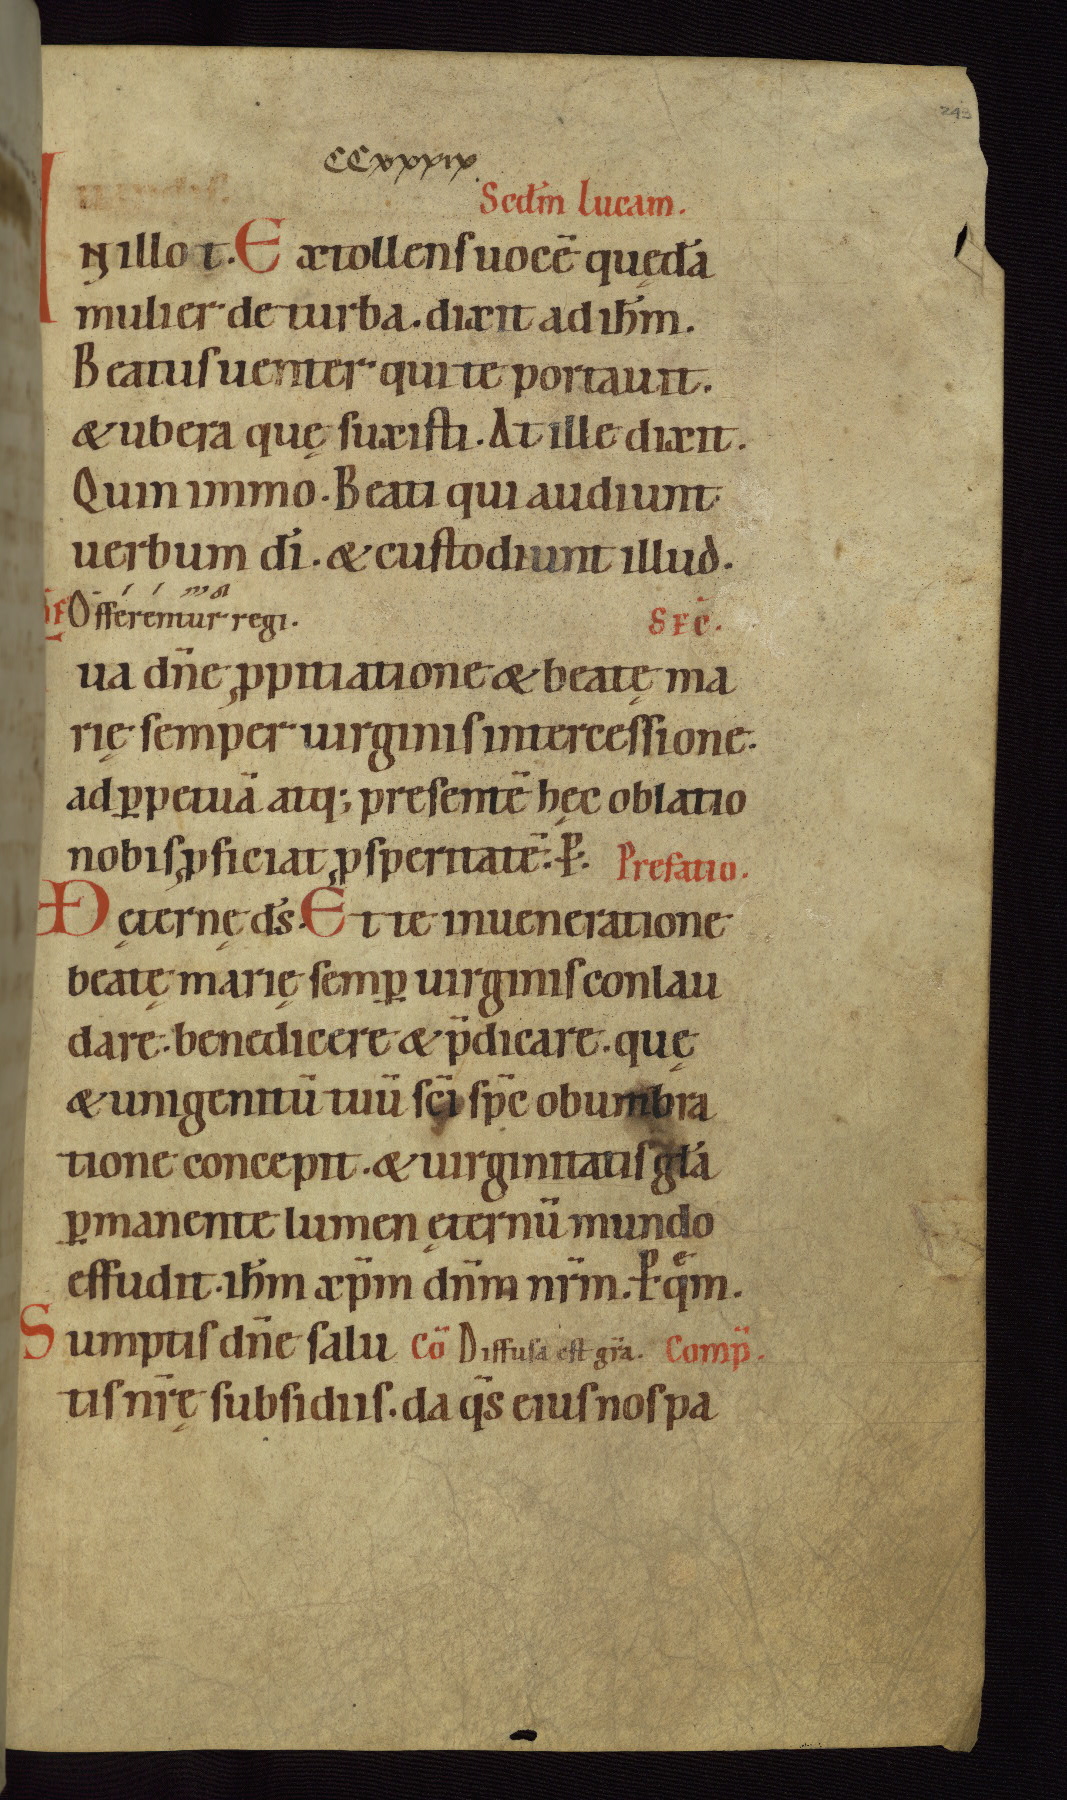 243
CCxxxix.
Scd̄m lucam.
In illo t. Extollens uocē quędā
mulier de turba. dixit ad ih̄m.
Beatus uenter qui te portauit.
& ubera quę suxisti. At ille dixit.
Quin immo. Beati qui audiunt
uerbum d̄i. & custodiunt illud.
ŌF Offerentur regi. SEC̄.
ua dn̄e ꝓpitiatione & beatę ma
rię semper uirginis intercessione.
ad ꝑpetuā atq; presentē hęc oblatio
nobis ꝓficiat ꝓsperitatē. P. Prefatio.
VD ęternę d̄s. Et te in ueneratione
beatę marię semꝑ uirginis conlau
dare. benedicere & p̄dicare. quę
& unigenitū tuū sc̄i sp̄c obumbra
tione concepit. & uirginitatis gl̄a
ꝑmanente lumen ęternū mundo
effudit. ih̄m xp̄m dn̄m nr̄m. P. quem.
Sumptis dn̄e salu Cō Diffusa est gr̄a. Comp̄.
tis nr̄ę subsidiis. da q̄s eius nos pa